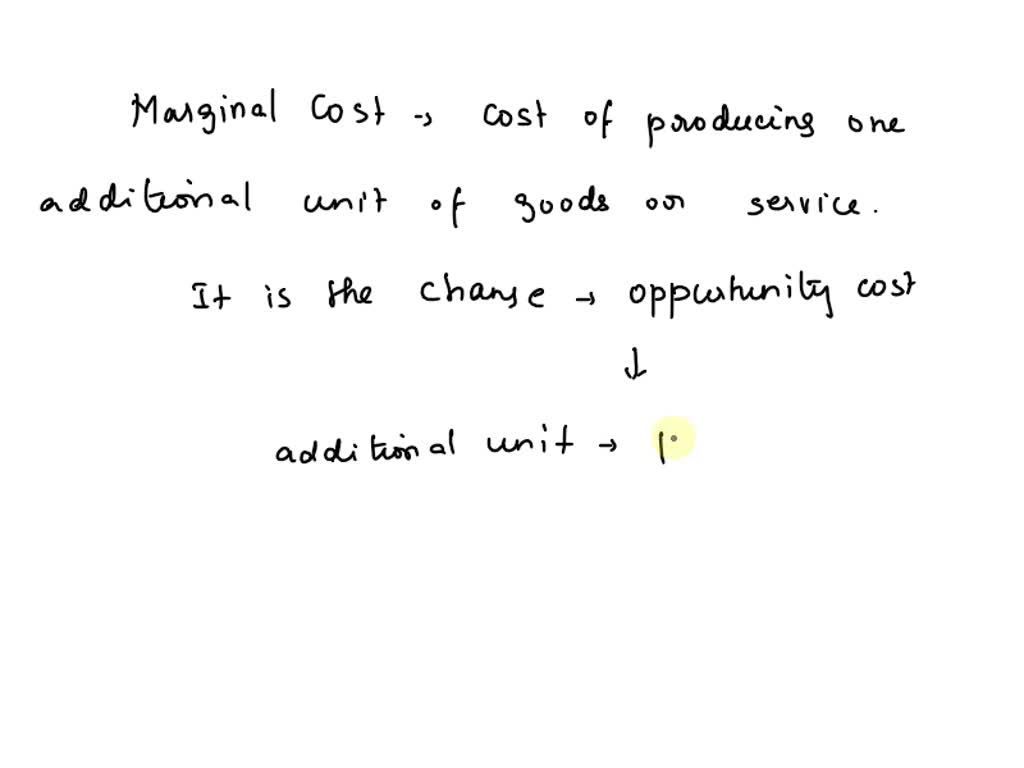 Marginal Cost → cost of producing one
additional unit of goods or service.
It is the change → opportunity cost
↓
additional unit →